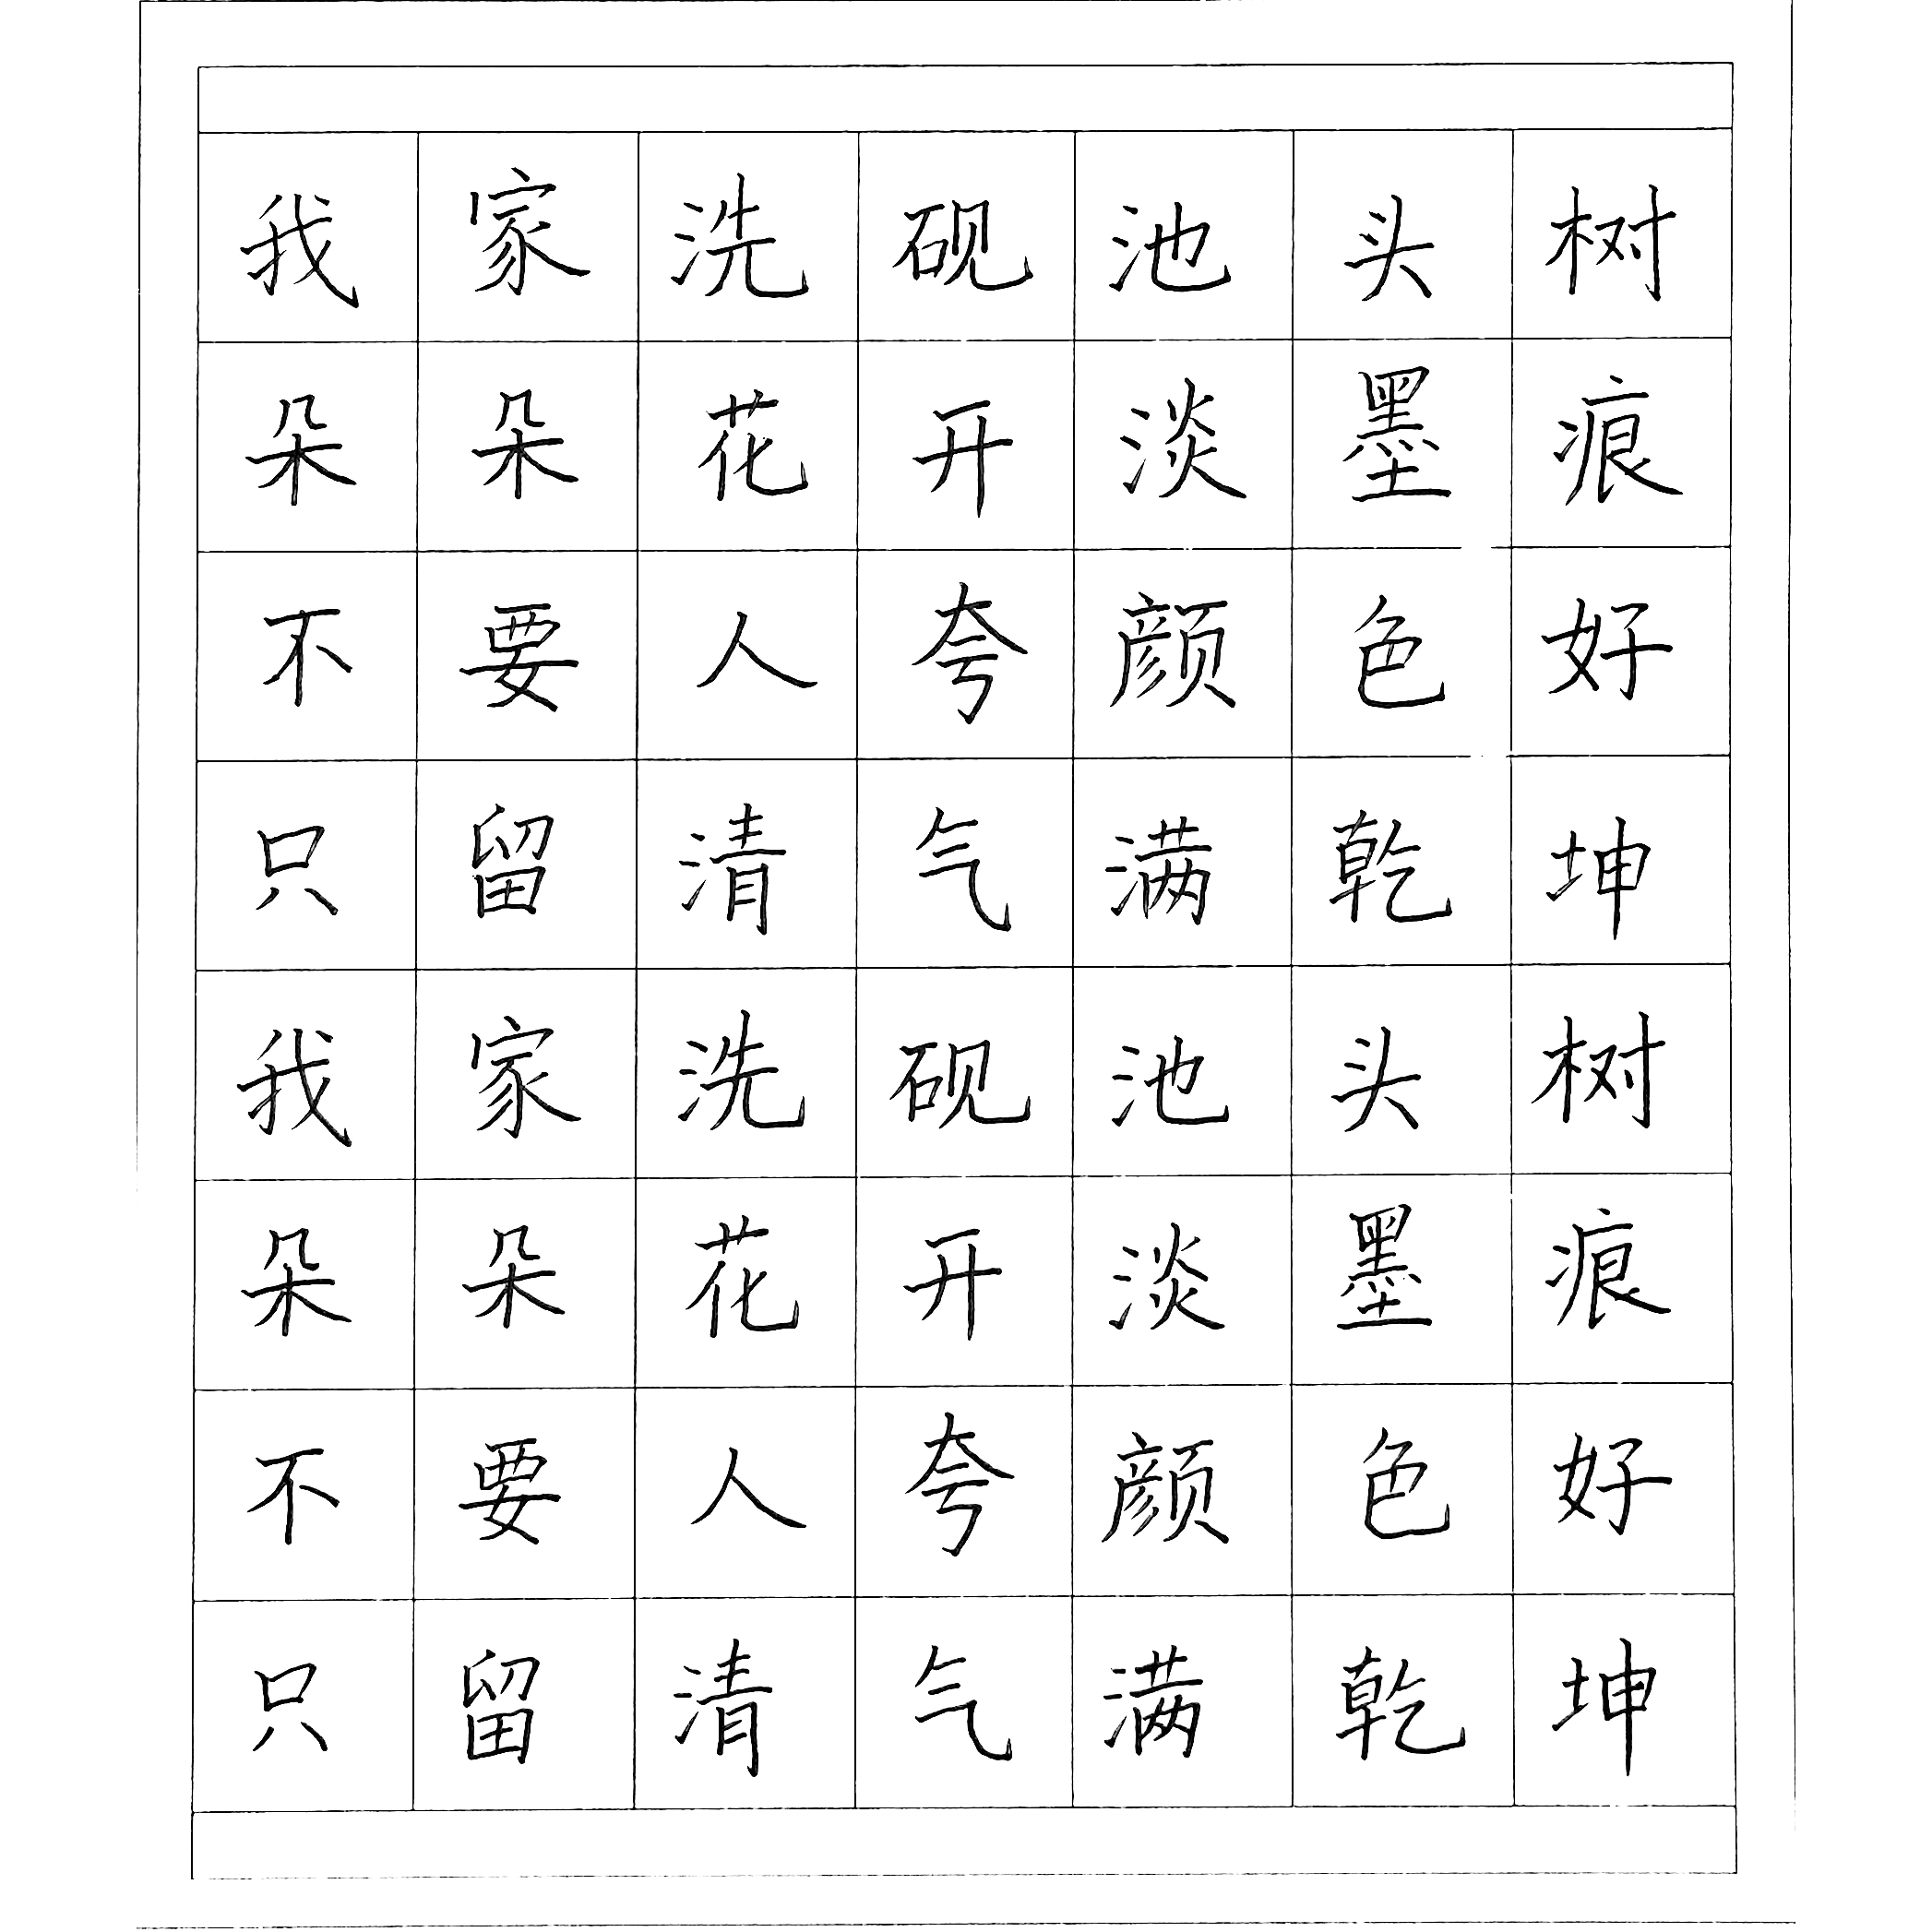 我家洗砚池头树
朵朵花开淡墨痕
不要人夸颜色好
只留清气满乾坤
我家洗砚池头树
朵朵花开淡墨痕
不要人夸颜色好
只留清气满乾坤